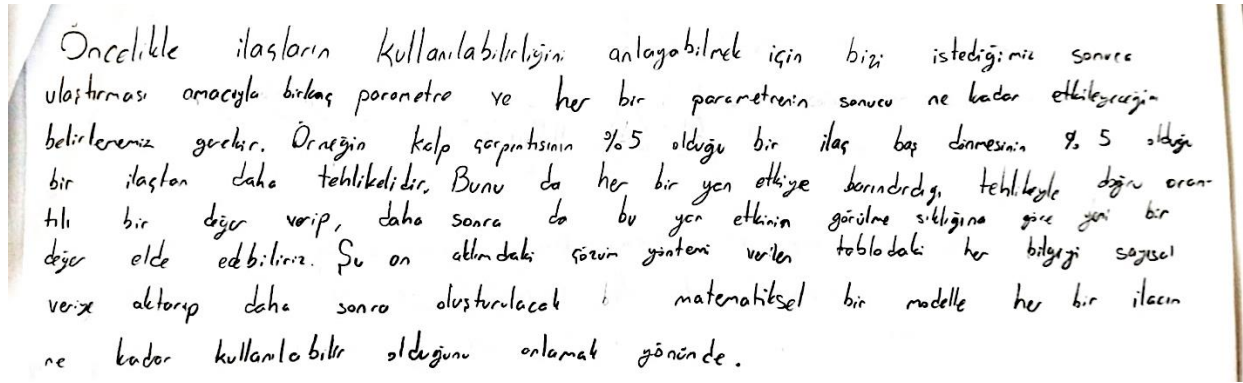 Öncelikle ilaçların kullanılabilirliğini anlayabilmek için bizi istediğimiz sonuca
ulaştırması amacıyla birkaç parametre ve her bir parametrenin sonucu ne kadar etkileyeceğin
belirlememiz gerekir. Örneğin kalp çarpıntısının %5 olduğu bir ilaç baş dönmesinin % 5 olduğu
bir ilaçtan daha tehlikelidir. Bunu da her bir yan etkiye barındırdığı tehlikeyle doğru oran-
tılı bir değer verip, daha sonra da bu yan etkinin görülme sıklığına göre yeni bir
değer elde edbiliriz. Şu an aklımdaki çözüm yöntemi verilen tablodaki her bilgiyi sayısal
veriye aktarıp daha sonra oluşturulacak matematiksel bir modelle her bir ilacın
ne kadar kullanılabilir olduğunu anlamak yönünde.